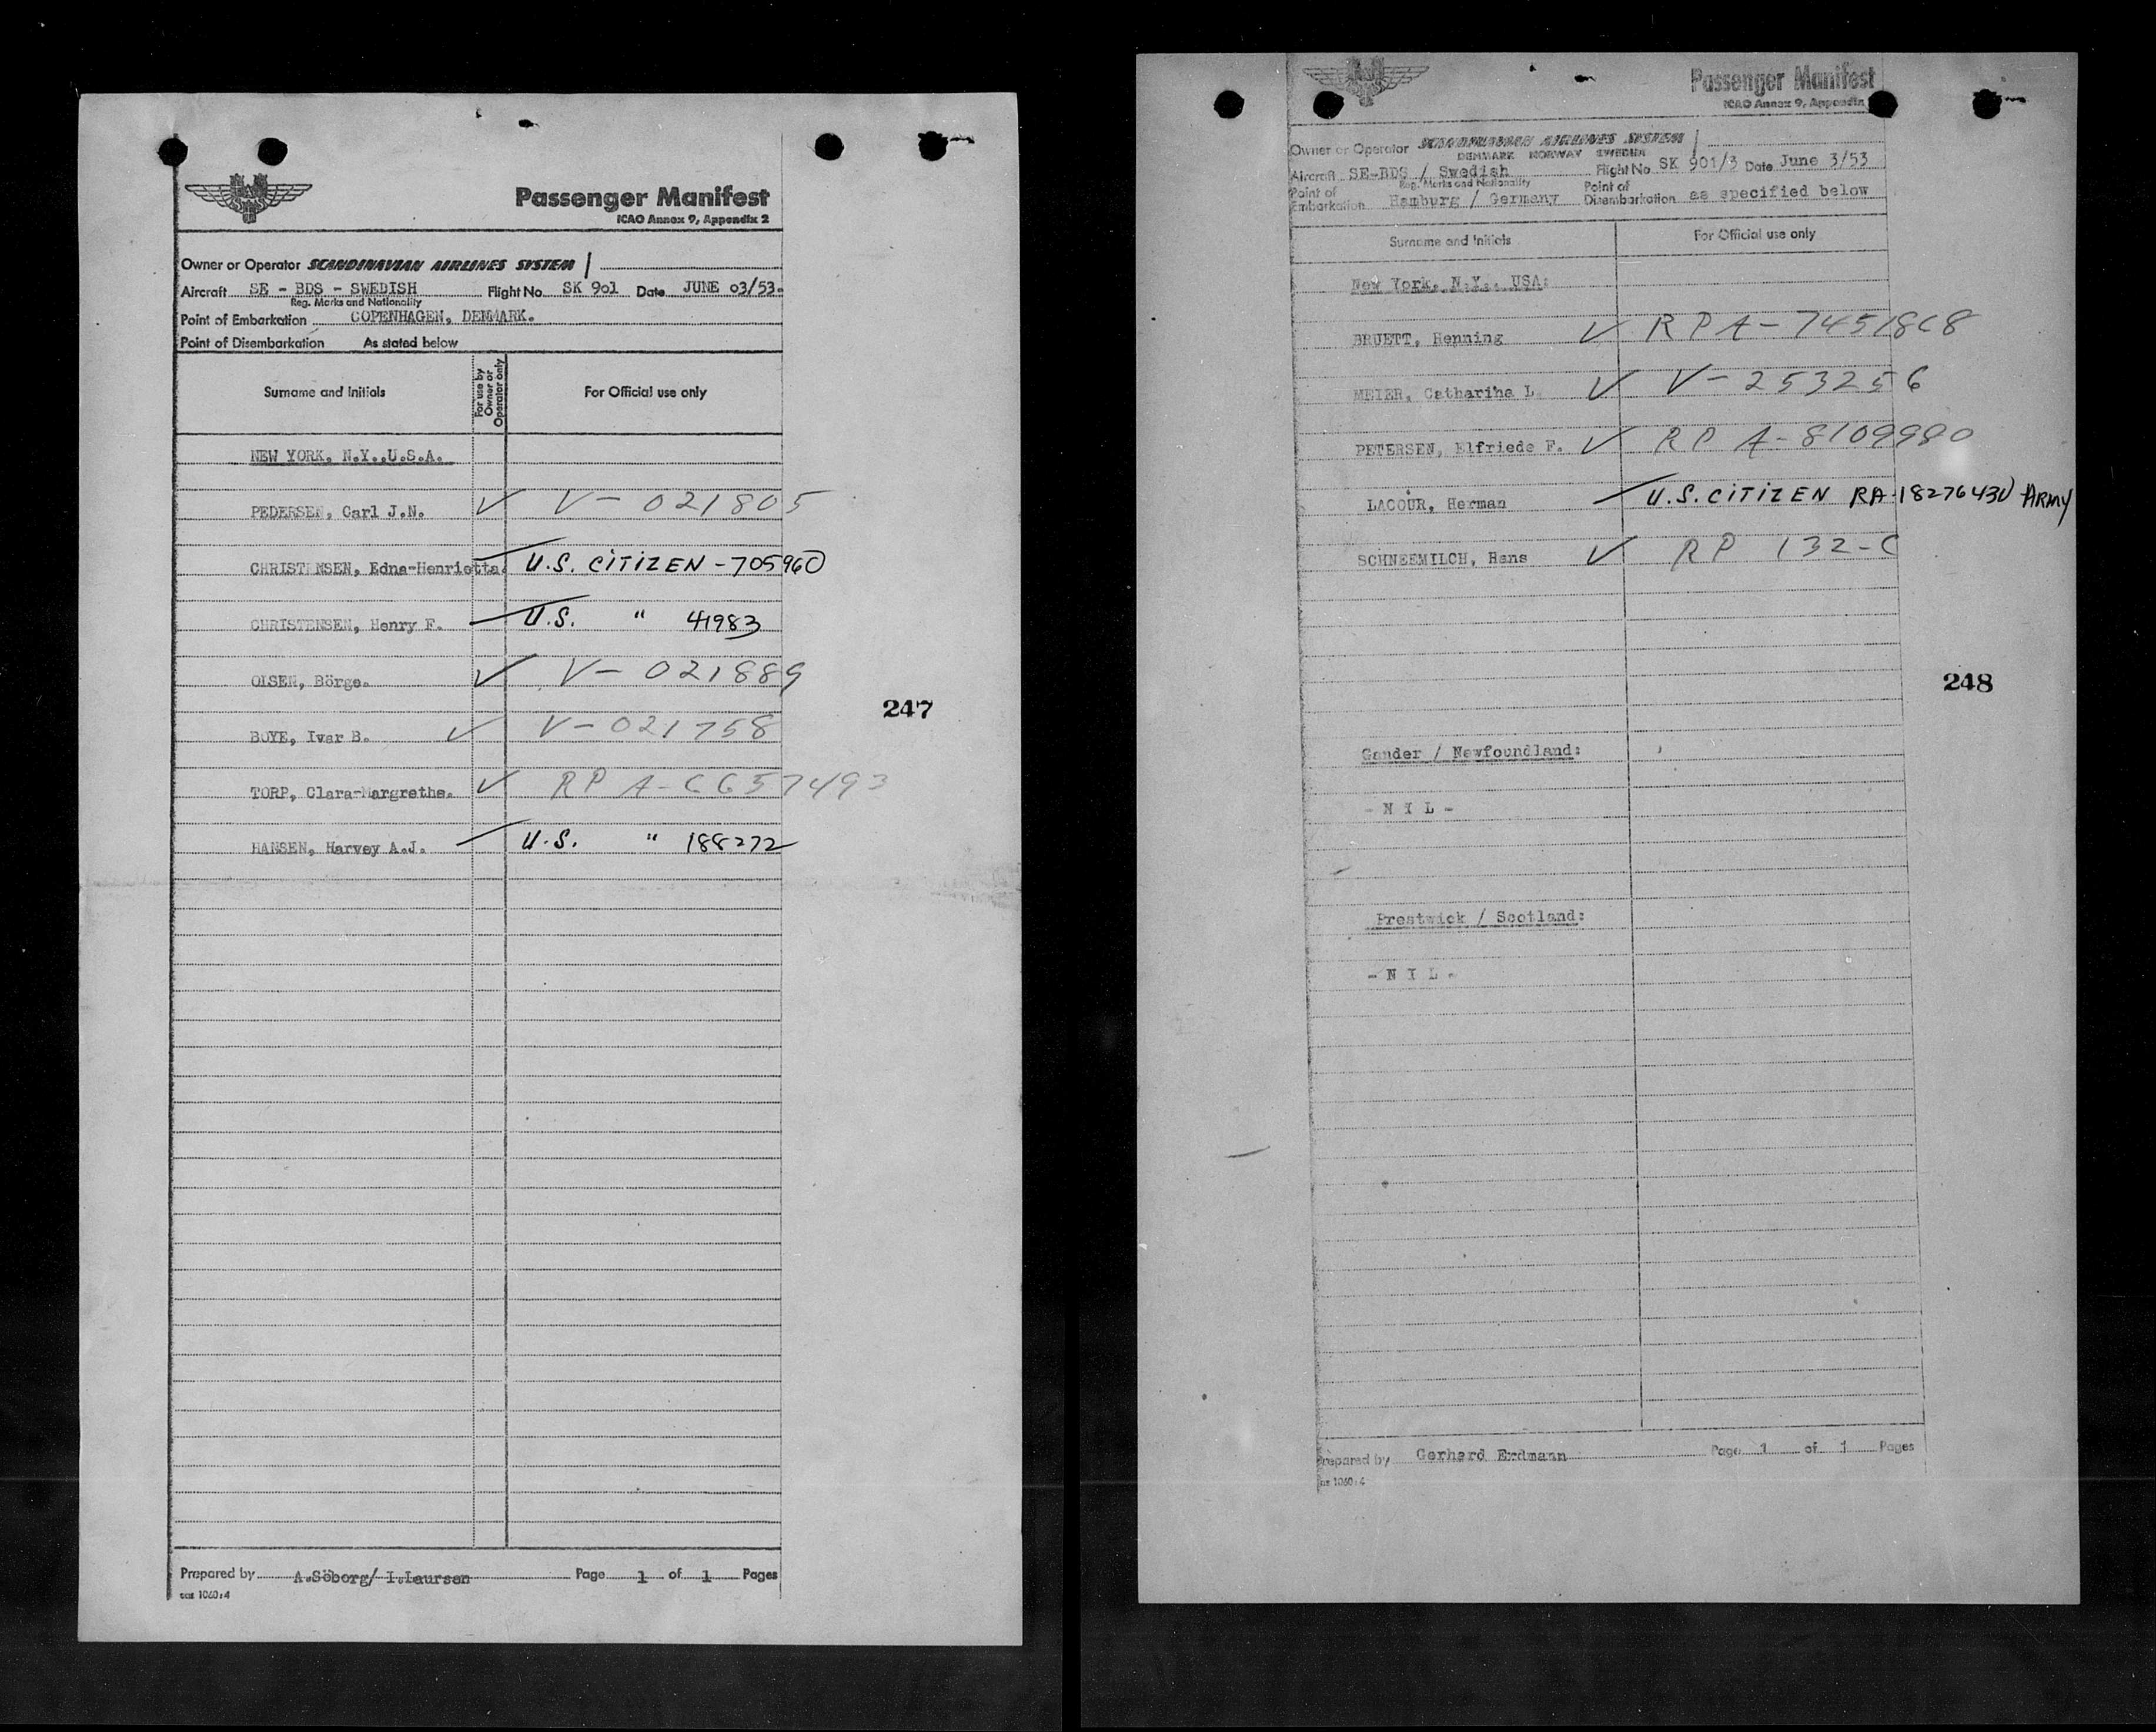 Passenger Manifest
ICAO Annex 9, Appendix 2
Owner or Operator SCANDINAVIAN AIRLINES SYSTEM
Aircraft SE - BDS - SWEDISH Flight No SK 901 Date JUNE 03/53.
Reg. Marks and Nationality
Point of Embarkation COPENHAGEN, DENMARK.
Point of Disembarkation As stated below
Surname and Initials For use by Owner or Operator only For Official use only
NEW YORK, N.Y.,U.S.A.
PEDERSEN, Carl J.N. V- 021805
CHRISTENSEN, Edna-Henrietta. U.S. CITIZEN - 705960
CHRISTENSEN, Henry F. U.S. " 41983
OLSEN, Börge. V- 021889
BOYE, Ivar B. V- 021758
TORP, Clara-Margrethe. RP A-6657493
HANSEN, Harvey A.J. U.S. " 188272
247
Prepared by A.Söborg/ I.Laursen Page 1 of 1 Pages
sas 1060:4
Passenger Manifest
ICAO Annex 9, Appendix
Owner or Operator SCANDINAVIAN AIRLINES SYSTEM
DENMARK NORWAY SWEDEN
Aircraft SE-BDS / Swedish Flight No SK 901/3 Date June 3/53
Reg. Marks and Nationality
Point of Embarkation Hamburg / Germany Point of Disembarkation as specified below
Surname and Initials For Official use only
New York, N.Y., USA:
BRUETT, Henning RP A-7451868
MEIER, Catharina L. V-253256
PETERSEN, Elfriede F. RP A-8109980
LACOUR, Herman U.S. CITIZEN RA-18276430 ARMY
SCHNEEMILCH, Hans RP 132-C
248
Gander / Newfoundland:
- N I L -
Prestwick / Scotland:
- N I L -
Prepared by Gerhard Erdmann Page 1 of 1 Pages
sas 1060:4